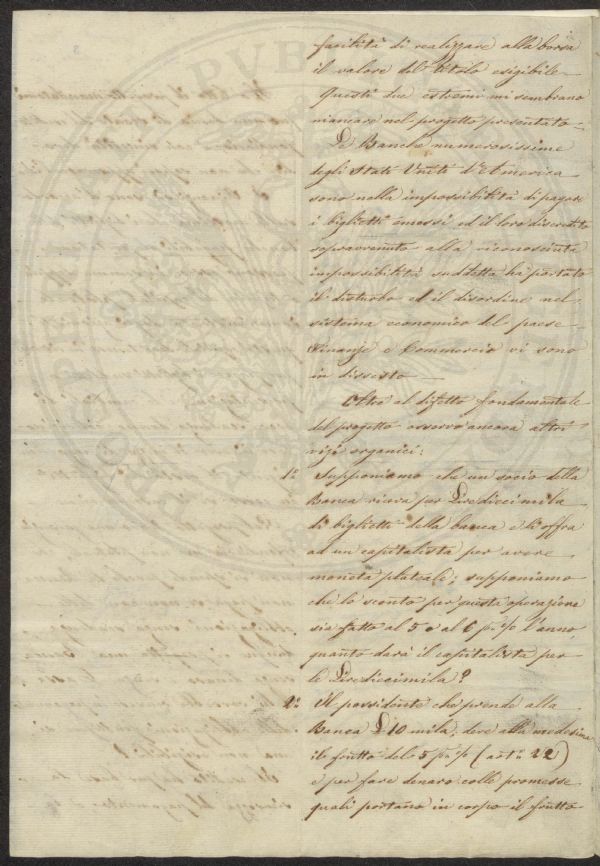 facilità di realizzare alla borsa
il valore del titolo esigibile_
Questi due estremi mi sembrano
mancare nel progetto presentato_
Le Banche numerosissime
degli Stati Uniti d'America
sono nella impossibilità di pagare
i biglietti emessi ed il loro discredito
sopravvenuto alla riconosciuta
impossibilità suddetta ha portato
il disturbo ed il disordine nel
sistema economico del paese_
Finanze e Commercio vi sono
in dissesto_
Oltre al difetto fondamentale
del progetto osservo ancora altri
vizi organici:
1º Supponiamo che un socio della
Banca riceva per Lire diecimila
di biglietti della banca e li offra
ad un capitalista per avere
moneta plateale; supponiamo
che lo sconto per questa operazione
sia fatto al 5 o al 6 p. % l'anno
quanto darà il capitalista per
le Lire diecimila?
2º Il possidente che prende alla
Banca £ 10 mila, deve alla medesima
il frutto del 5 p. % (art. 22)
e per fare denaro colle promesse
quali portano in corpo il frutto